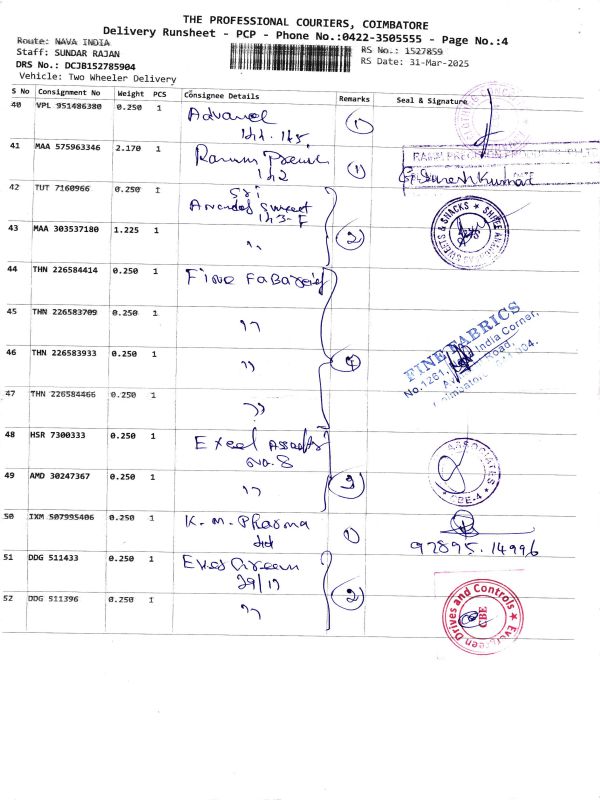 THE PROFESSIONAL COURIERS, COIMBATORE
Delivery Runsheet - PCP - Phone No.:0422-3505555 - Page No.:4
Route: NAVA INDIA
Staff: SUNDAR RAJAN
DRS No.: DCJB152785904
Vehicle: Two Wheeler Delivery
RS No.: 1527859
RS Date: 31-Mar-2025
S No Consignment No Weight PCS Consignee Details Remarks Seal & Signature
40 VPL 951486380 0.250 1 1
41 MAA 575963346 2.170 1 1
142
G. Sureshkumar
42 TUT 7160966 0.250 1 Sri
SWEETS & SNACKS
43 MAA 303537180 1.225 1 " 2
44 THN 226584414 0.250 1 Fine
45 THN 226583709 0.250 1 "
46 THN 226583933 0.250 1 " 4
FINE FABRICS
No.1261, India Corner,
Road,
47 THN 226584466 0.250 1 "
48 HSR 7300333 0.250 1 Excel
No. 8
49 AMD 30247367 0.250 1 "
ASSOCIATES
CBE-4
50 IXM 507995406 0.250 1 K. M. Pharma 1
97895.14996
51 DDG 511433 0.250 1
29/17
2
52 DDG 511396 0.250 1 "
Evergreen Drives and Controls
CBE